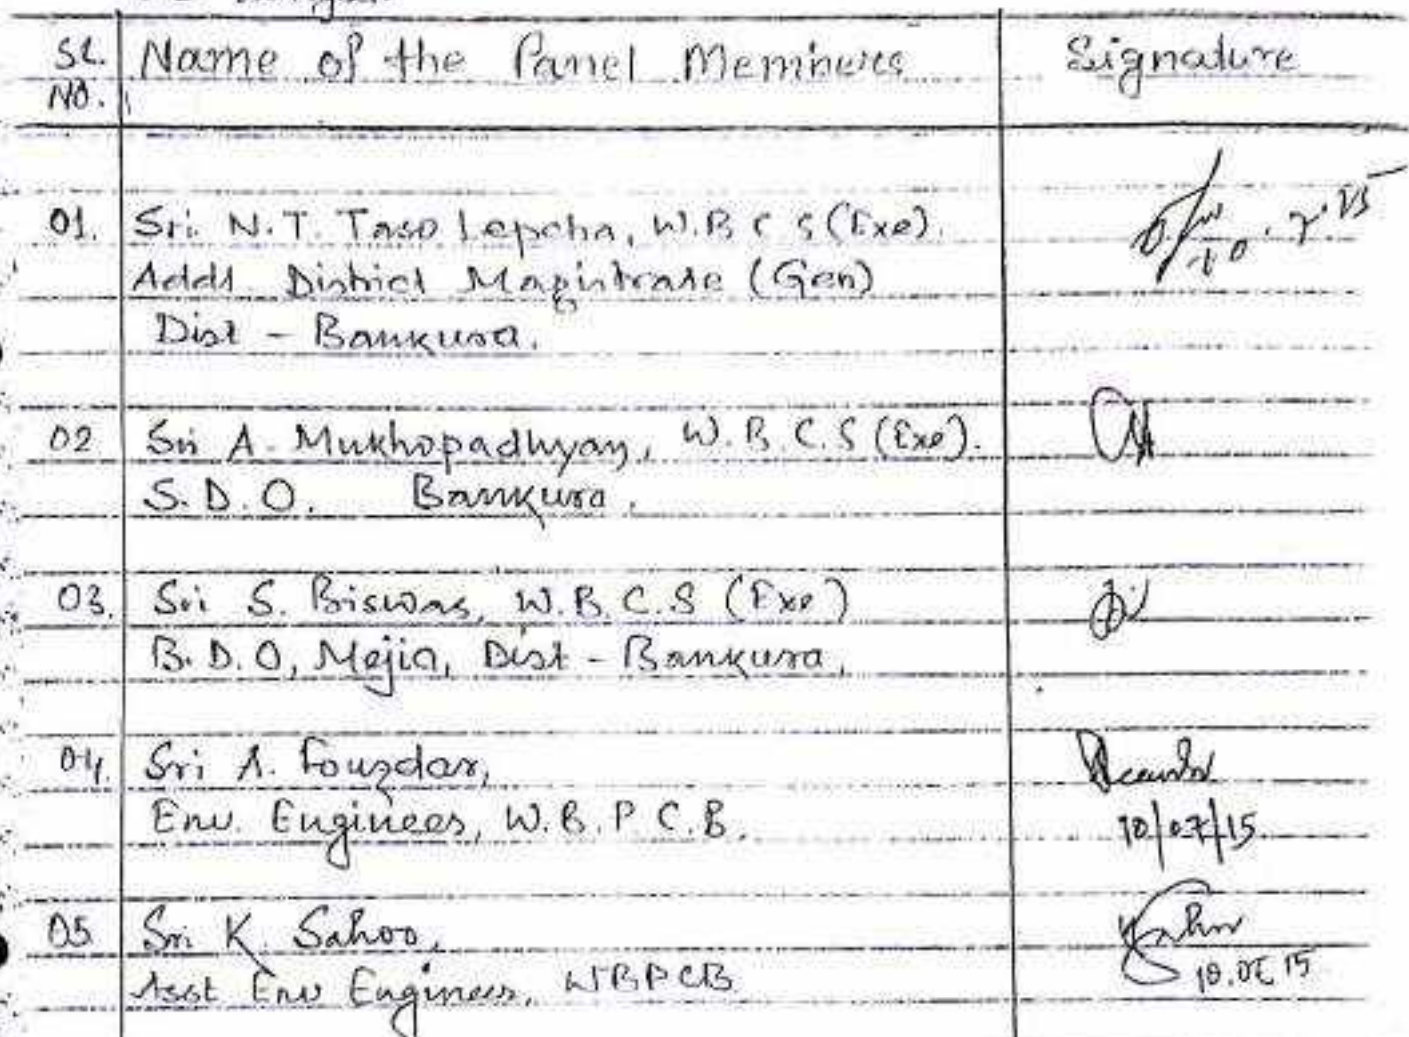 SL. Name of the Panel Members Signature
NO.
01. Sri. N.T. Taso Lepcha, W.B.C.S (Exe).
Addl District Magistrate (Gen)
Dist - Bankura.
02 Sri A. Mukhopadhyay, W.B.C.S (Exe).
S.D.O. Bankura.
03. Sri S. Biswas, W.B.C.S (Exe)
B.D.O, Mejia, Dist - Bankura,
04. Sri A. Fouzdar,
Env. Engineer, W.B.P.C.B. 10/07/15
05 Sri K. Sahoo,
Asst Env Engineer, WBPCB 10.07.15